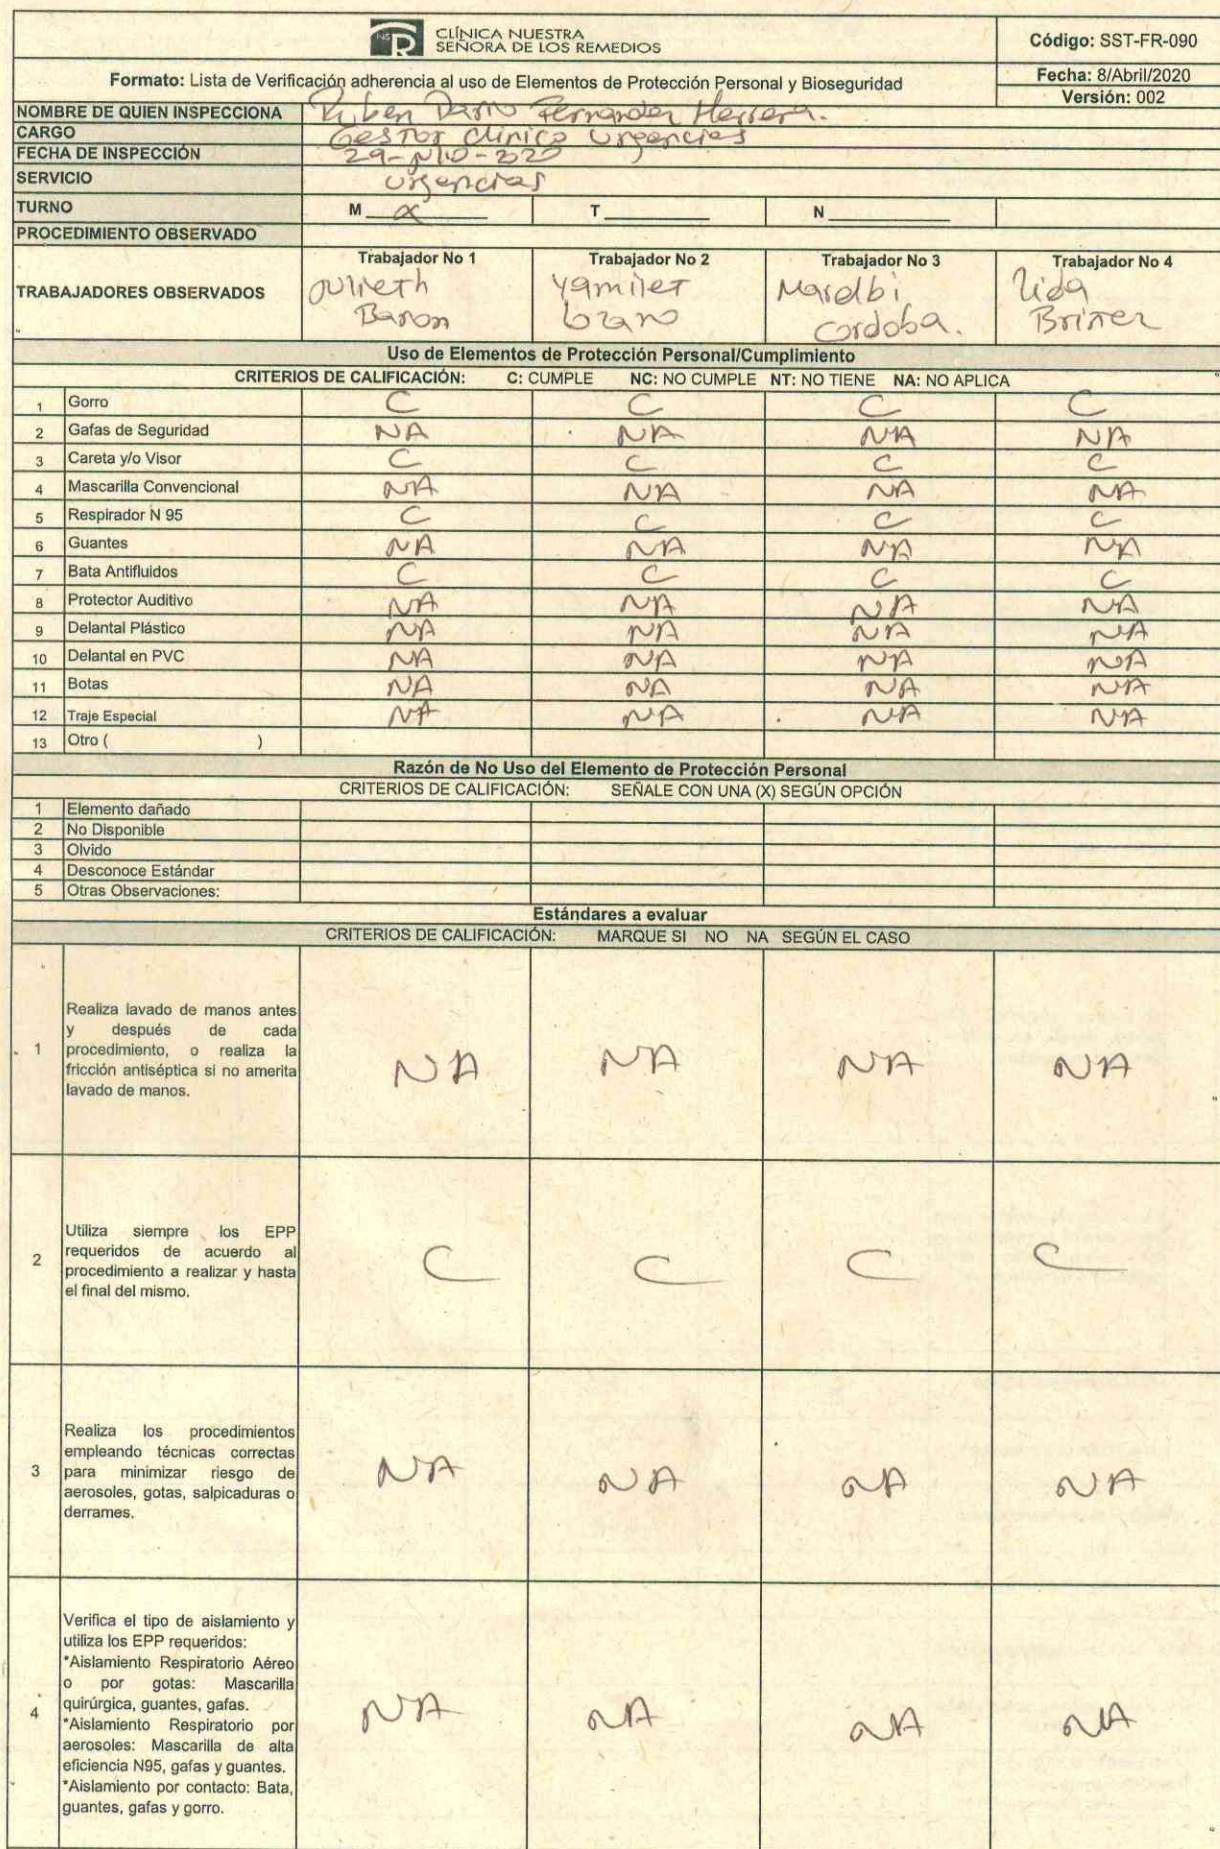 CLÍNICA NUESTRA
SEÑORA DE LOS REMEDIOS
Código: SST-FR-090
Formato: Lista de Verificación adherencia al uso de Elementos de Protección Personal y Bioseguridad
Fecha: 8/Abril/2020
Versión: 002
NOMBRE DE QUIEN INSPECCIONA Ruben Dario Fernandez Herrera.
CARGO Gestor Clinico Urgencias
FECHA DE INSPECCIÓN 29-Julio-2020
SERVICIO Urgencias
TURNO M X T N
PROCEDIMIENTO OBSERVADO
TRABAJADORES OBSERVADOS
Trabajador No 1 Trabajador No 2 Trabajador No 3 Trabajador No 4
Julieth Yamilet Marelbi Lida
Baron Cordoba.
Uso de Elementos de Protección Personal/Cumplimiento
CRITERIOS DE CALIFICACIÓN: C: CUMPLE NC: NO CUMPLE NT: NO TIENE NA: NO APLICA
1 Gorro C C C C
2 Gafas de Seguridad NA NA NA NA
3 Careta y/o Visor C C C C
4 Mascarilla Convencional NA NA NA NA
5 Respirador N 95 C C C C
6 Guantes NA NA NA NA
7 Bata Antifluidos C C C C
8 Protector Auditivo NA NA NA NA
9 Delantal Plástico NA NA NA NA
10 Delantal en PVC NA NA NA NA
11 Botas NA NA NA NA
12 Traje Especial NA NA NA NA
13 Otro ( )
Razón de No Uso del Elemento de Protección Personal
CRITERIOS DE CALIFICACIÓN: SEÑALE CON UNA (X) SEGÚN OPCIÓN
1 Elemento dañado
2 No Disponible
3 Olvido
4 Desconoce Estándar
5 Otras Observaciones:
Estándares a evaluar
CRITERIOS DE CALIFICACIÓN: MARQUE SI NO NA SEGÚN EL CASO
1
Realiza lavado de manos antes
y después de cada
procedimiento, o realiza la
fricción antiséptica si no amerita
lavado de manos.
NA NA NA NA
2
Utiliza siempre los EPP
requeridos de acuerdo al
procedimiento a realizar y hasta
el final del mismo.
C C C C
3
Realiza los procedimientos
empleando técnicas correctas
para minimizar riesgo de
aerosoles, gotas, salpicaduras o
derrames.
NA NA NA NA
4
Verifica el tipo de aislamiento y
utiliza los EPP requeridos:
*Aislamiento Respiratorio Aéreo
o por gotas: Mascarilla
quirúrgica, guantes, gafas.
*Aislamiento Respiratorio por
aerosoles: Mascarilla de alta
eficiencia N95, gafas y guantes.
*Aislamiento por contacto: Bata,
guantes, gafas y gorro.
NA NA NA NA